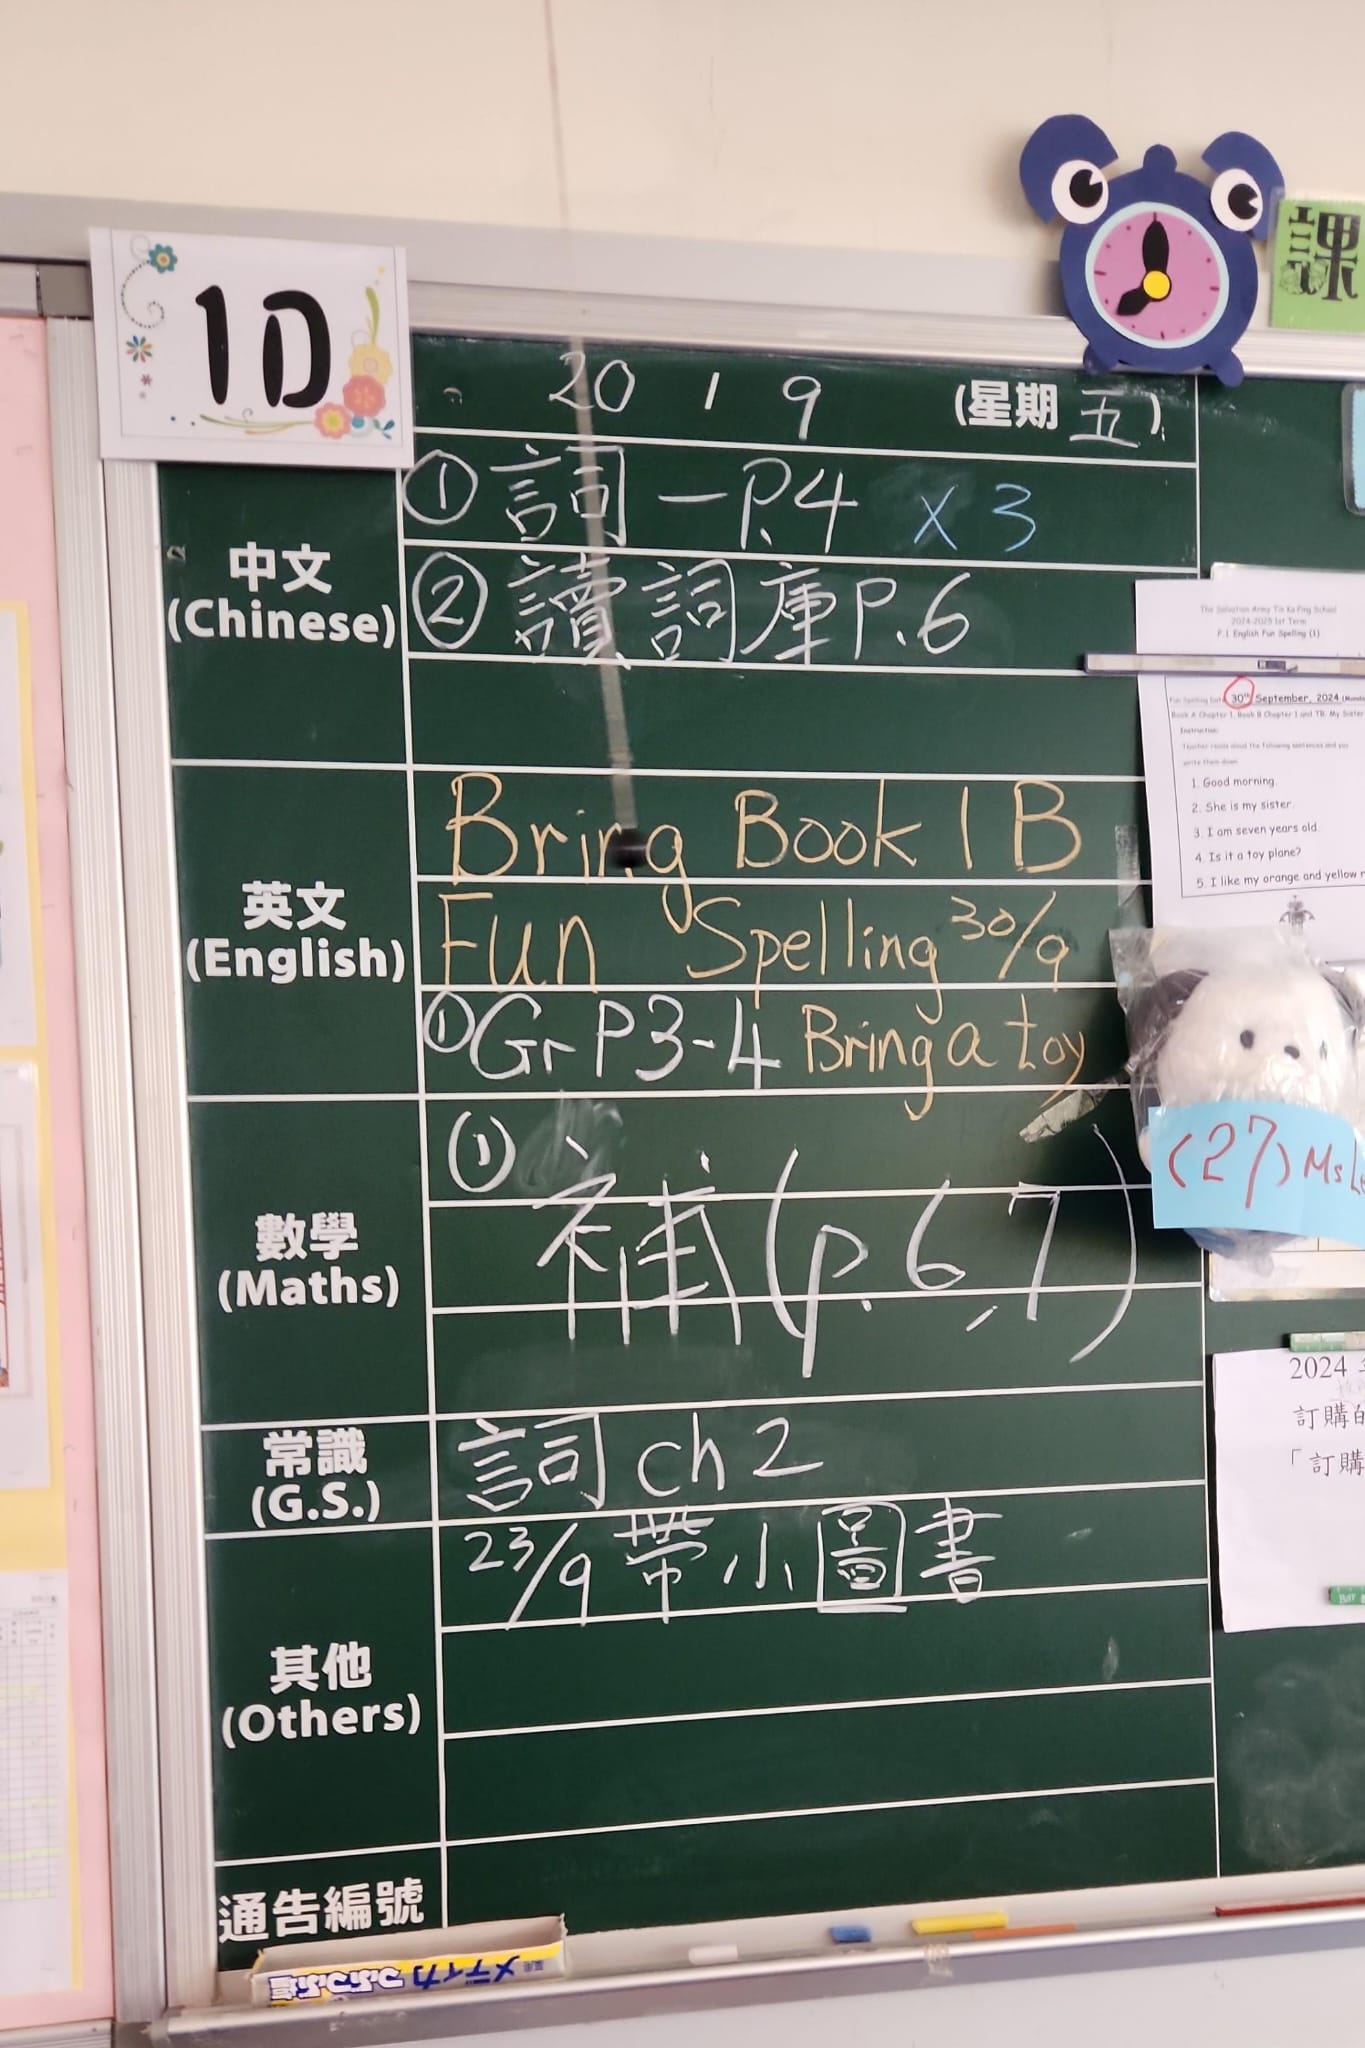 1D
課
20 1 9 (星期 五)
中文
(Chinese)
① 詞 一 P.4 x 3
② 讀 詞 庫 P.6
英文
(English)
Bring Book 1B
Fun Spelling 30/9
① Gr P3-4 Bring a toy
數學
(Maths)
①
補 (p. 6, 7)
常識
(G.S.)
詞 ch 2
其他
(Others)
23/9 帶 小 圖 書
通告編號
The Salvation Army Tin Ka Ping School
2024-2025 1st Term
P.1 English Fun Spelling (1)
30th September, 2024
Book A Chapter 1, Book B Chapter 1 and TB: My Sister
Instruction:
Teacher reads aloud the following sentences and you
write them down.
1. Good morning.
2. She is my sister.
3. I am seven years old.
4. Is it a toy plane?
5. I like my orange and yellow
(27) Ms
2024
訂購的
「訂購
メディカ つぶつぶ塩